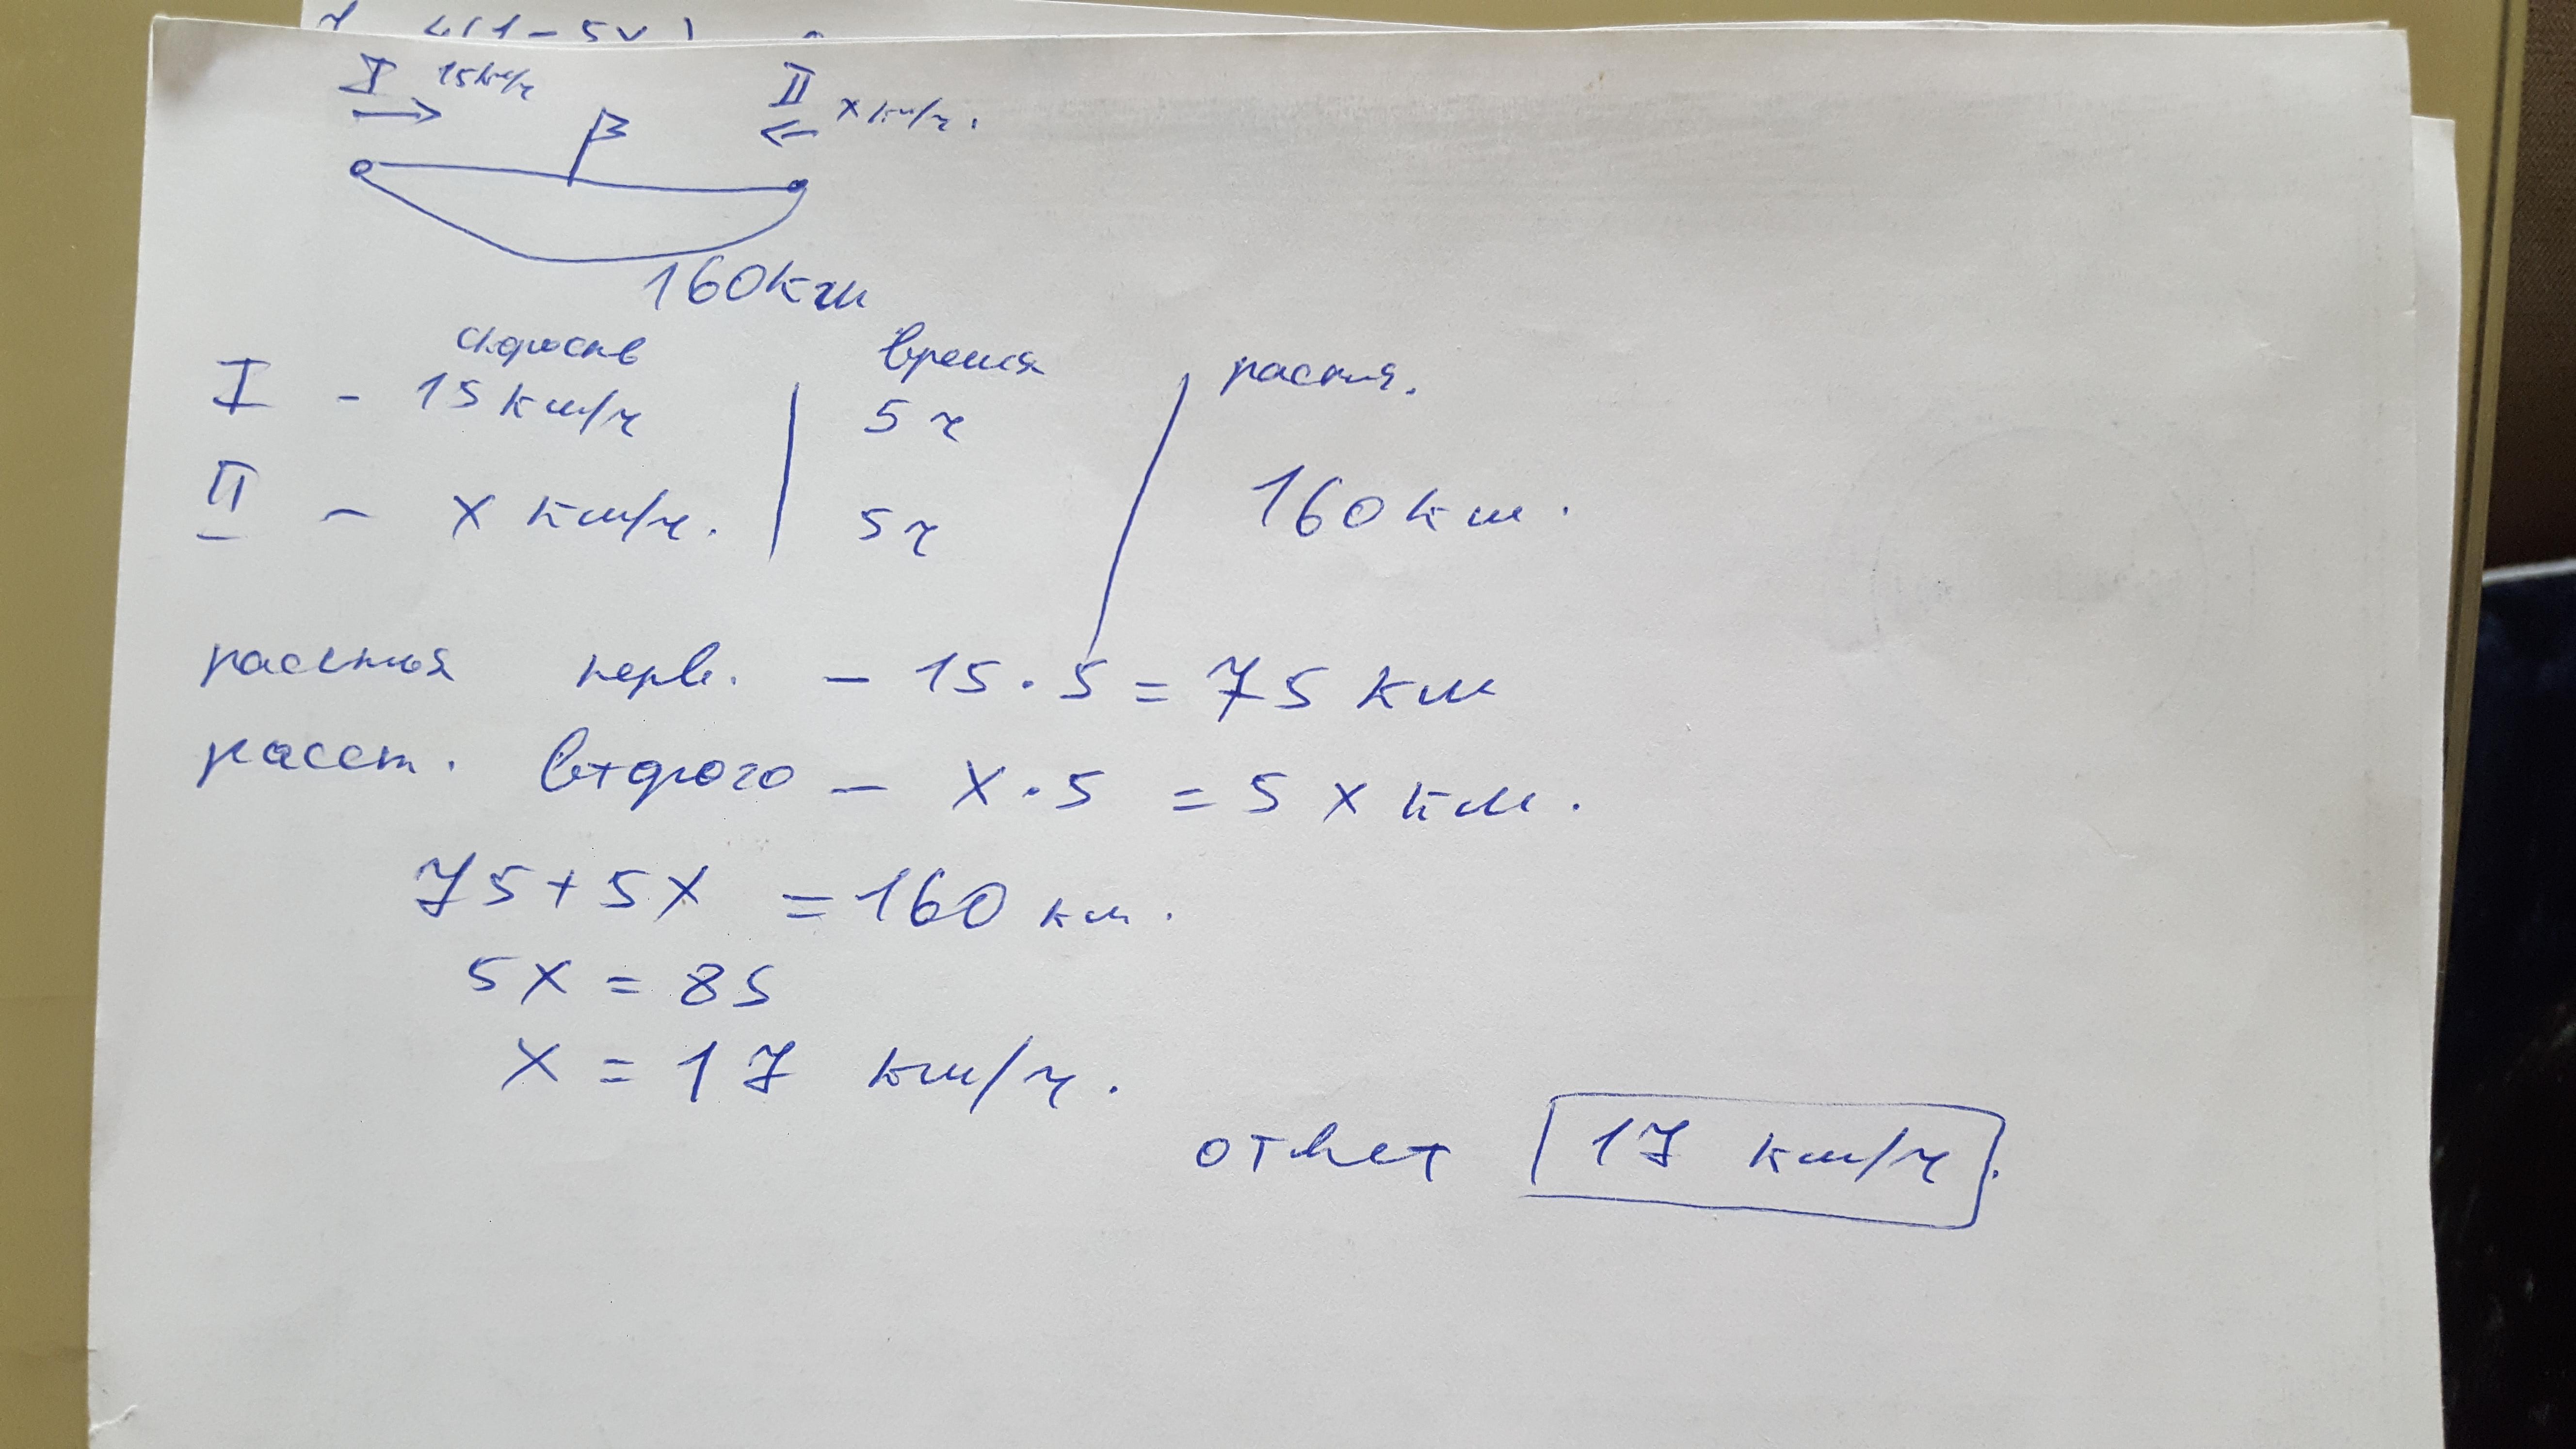 4(1-5
I 15км/ч II х км/ч.
160км
скорость время расстя.
I - 15 км/ч 5ч
II - х км/ч. 5ч 160км.
расстоя перв. - 15·5 = 75 км
расст. второго - х·5 = 5х км.
75+5х = 160 км.
5х = 85
х = 17 км/ч.
ответ 17 км/ч.